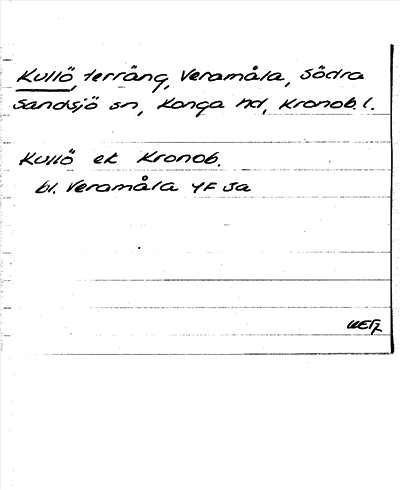 Kullö, terräng, Veramåla, Södra
Sandsjö sn, Konga hd, Kronob. l.
Kullö ek Kronob.
bl. Veramåla YF Sa